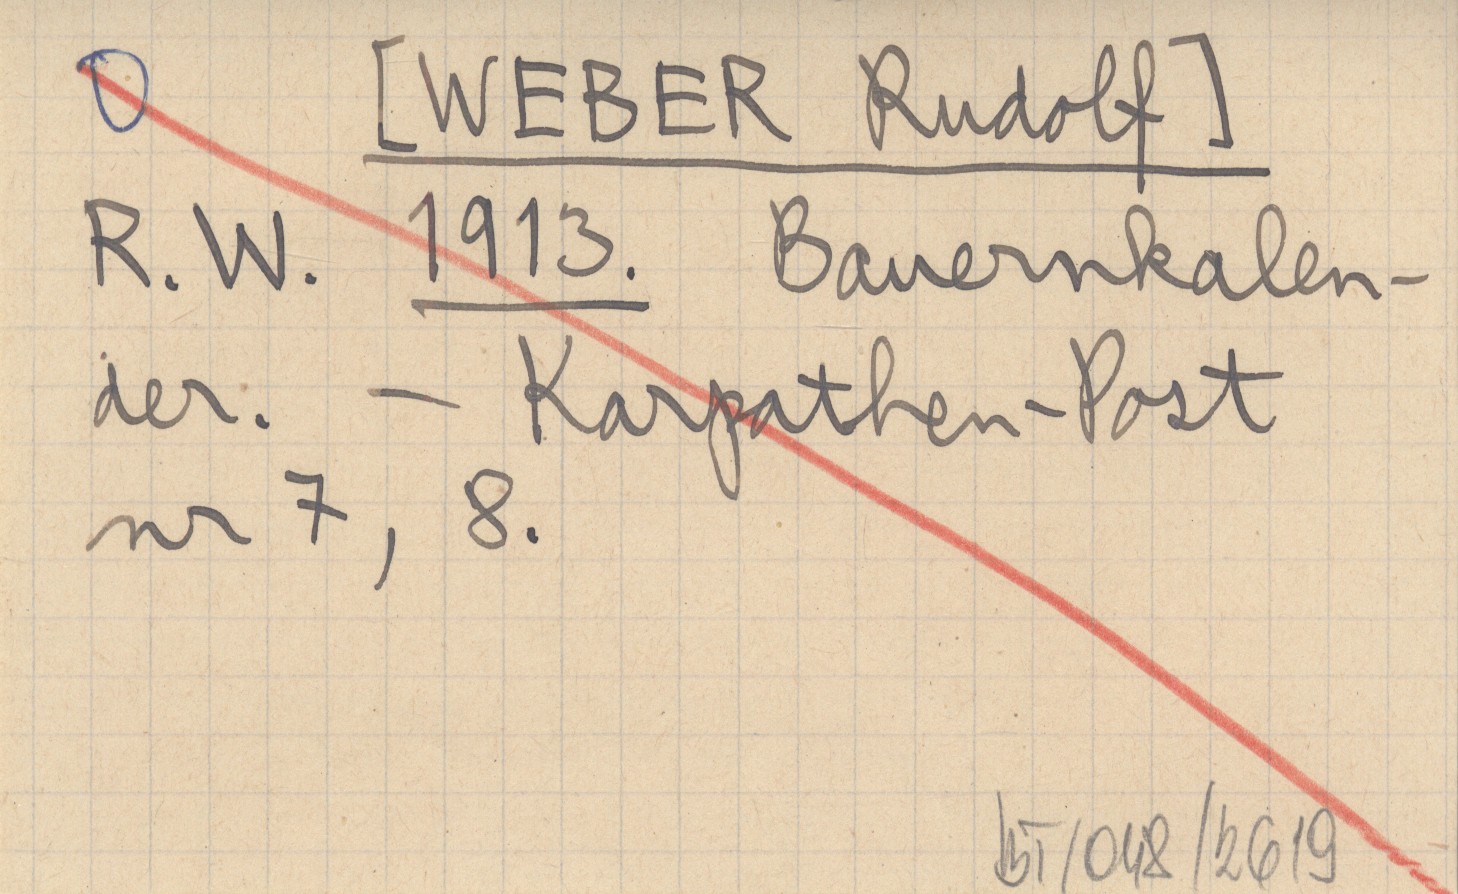 [WEBER Rudolf]
R. W. 1913. Bauernkalen-
der. – Karpathen-Post
nr 7, 8.
/048/2619